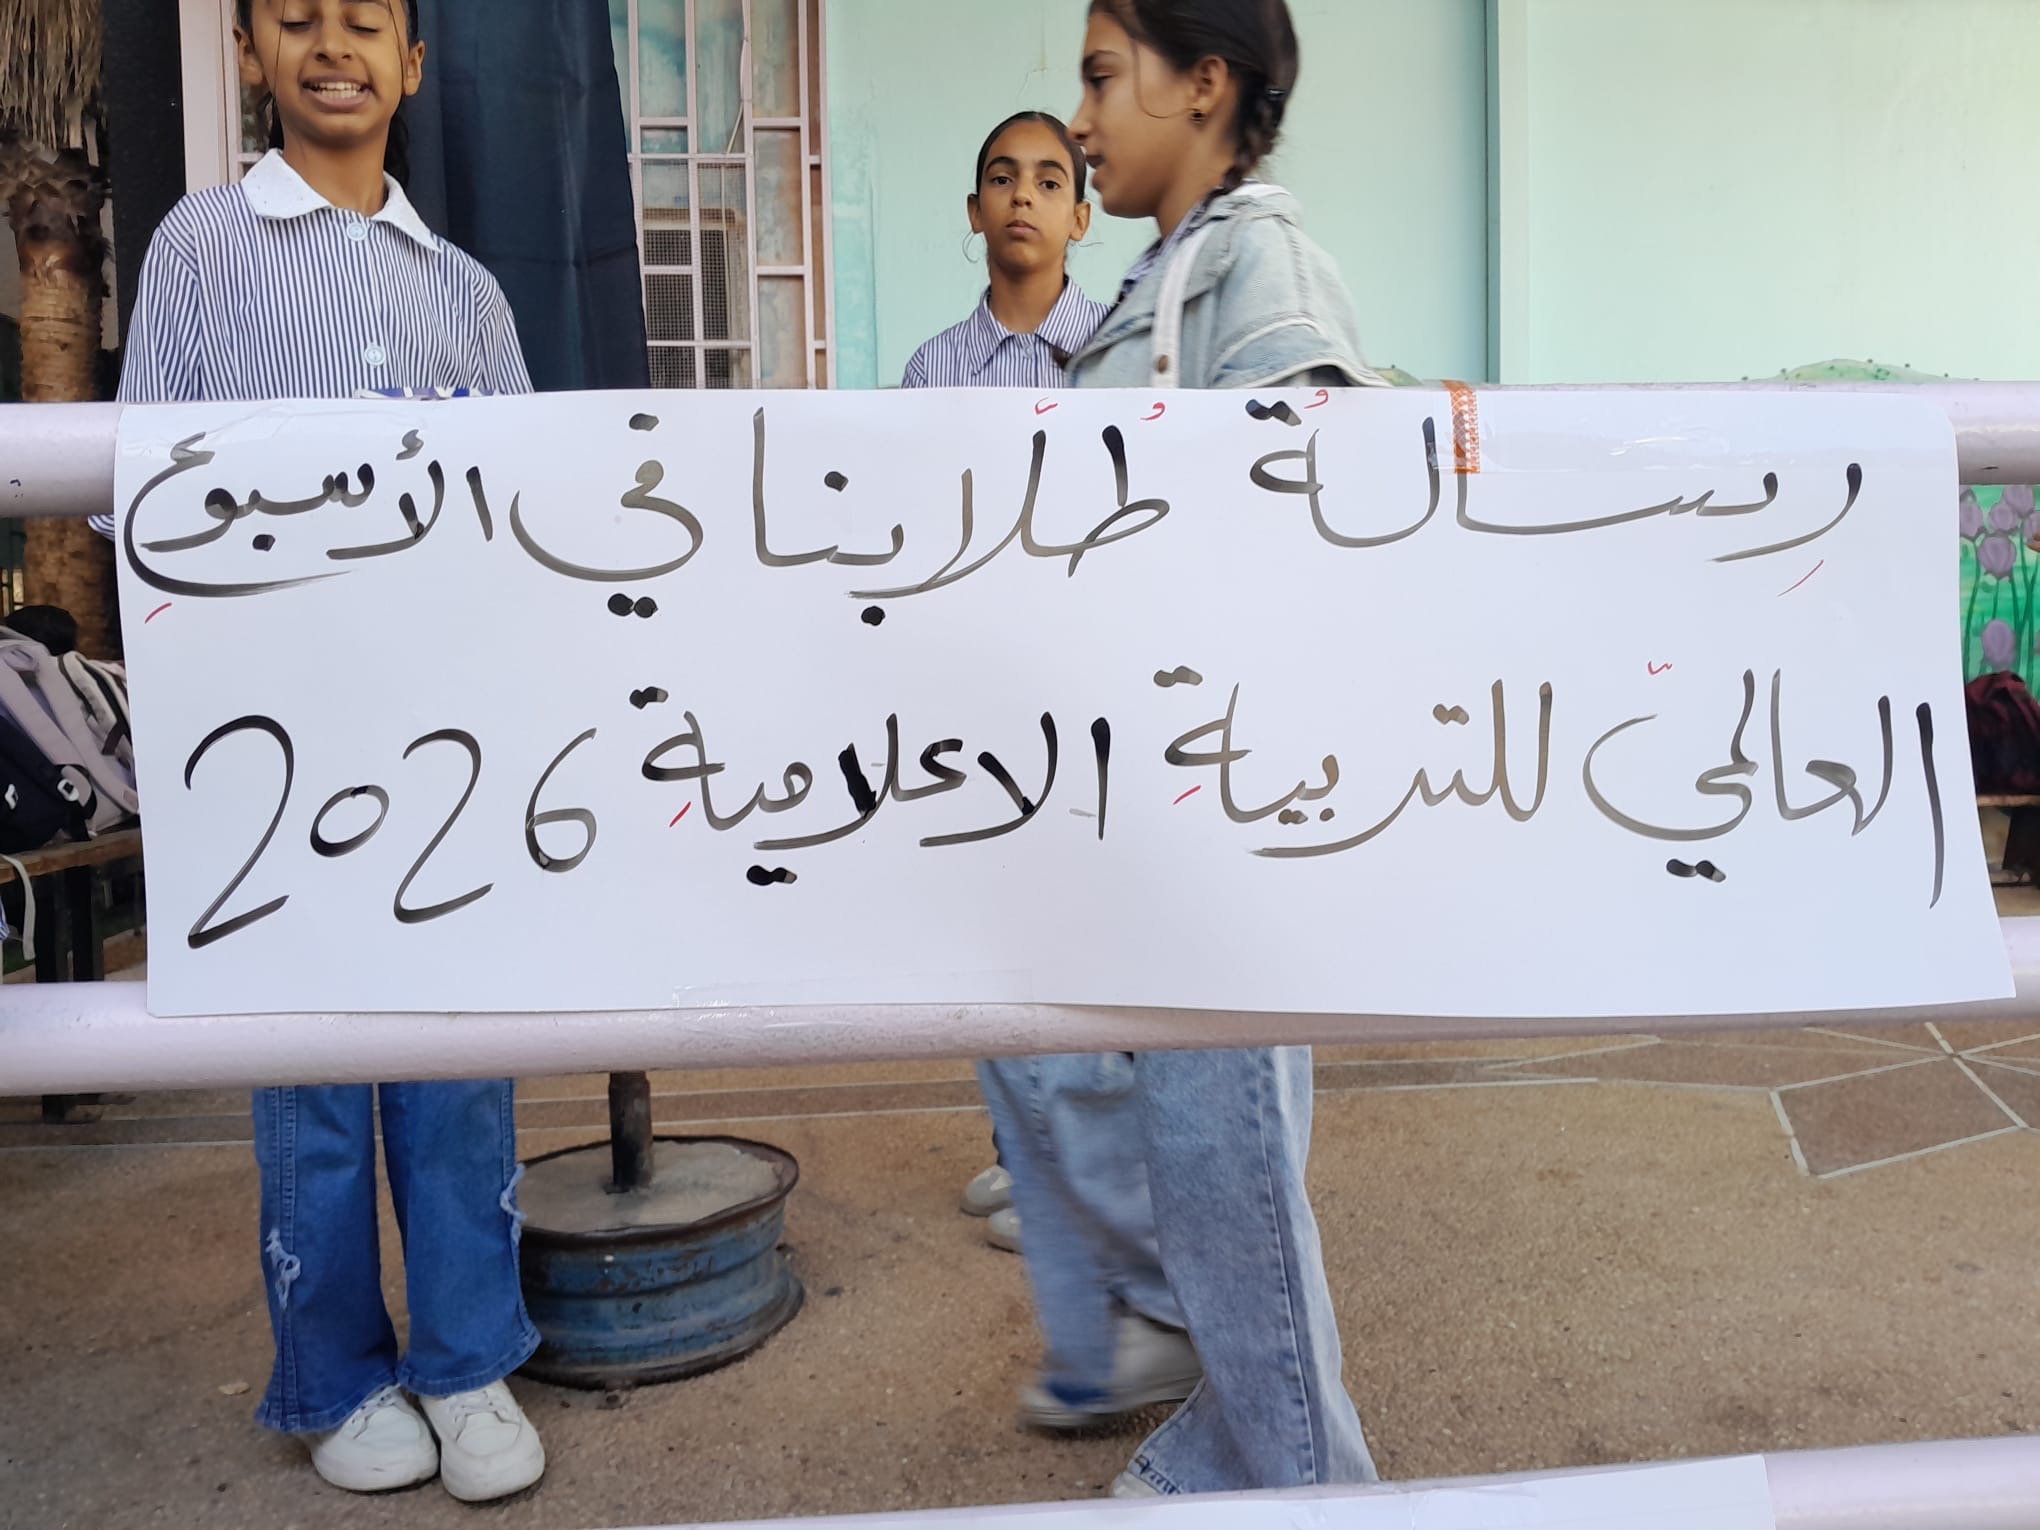 رِسالةُ طُلّابنا في الأسبوعِ
العالميّ للتربيةِ الاعلاميةِ 2026